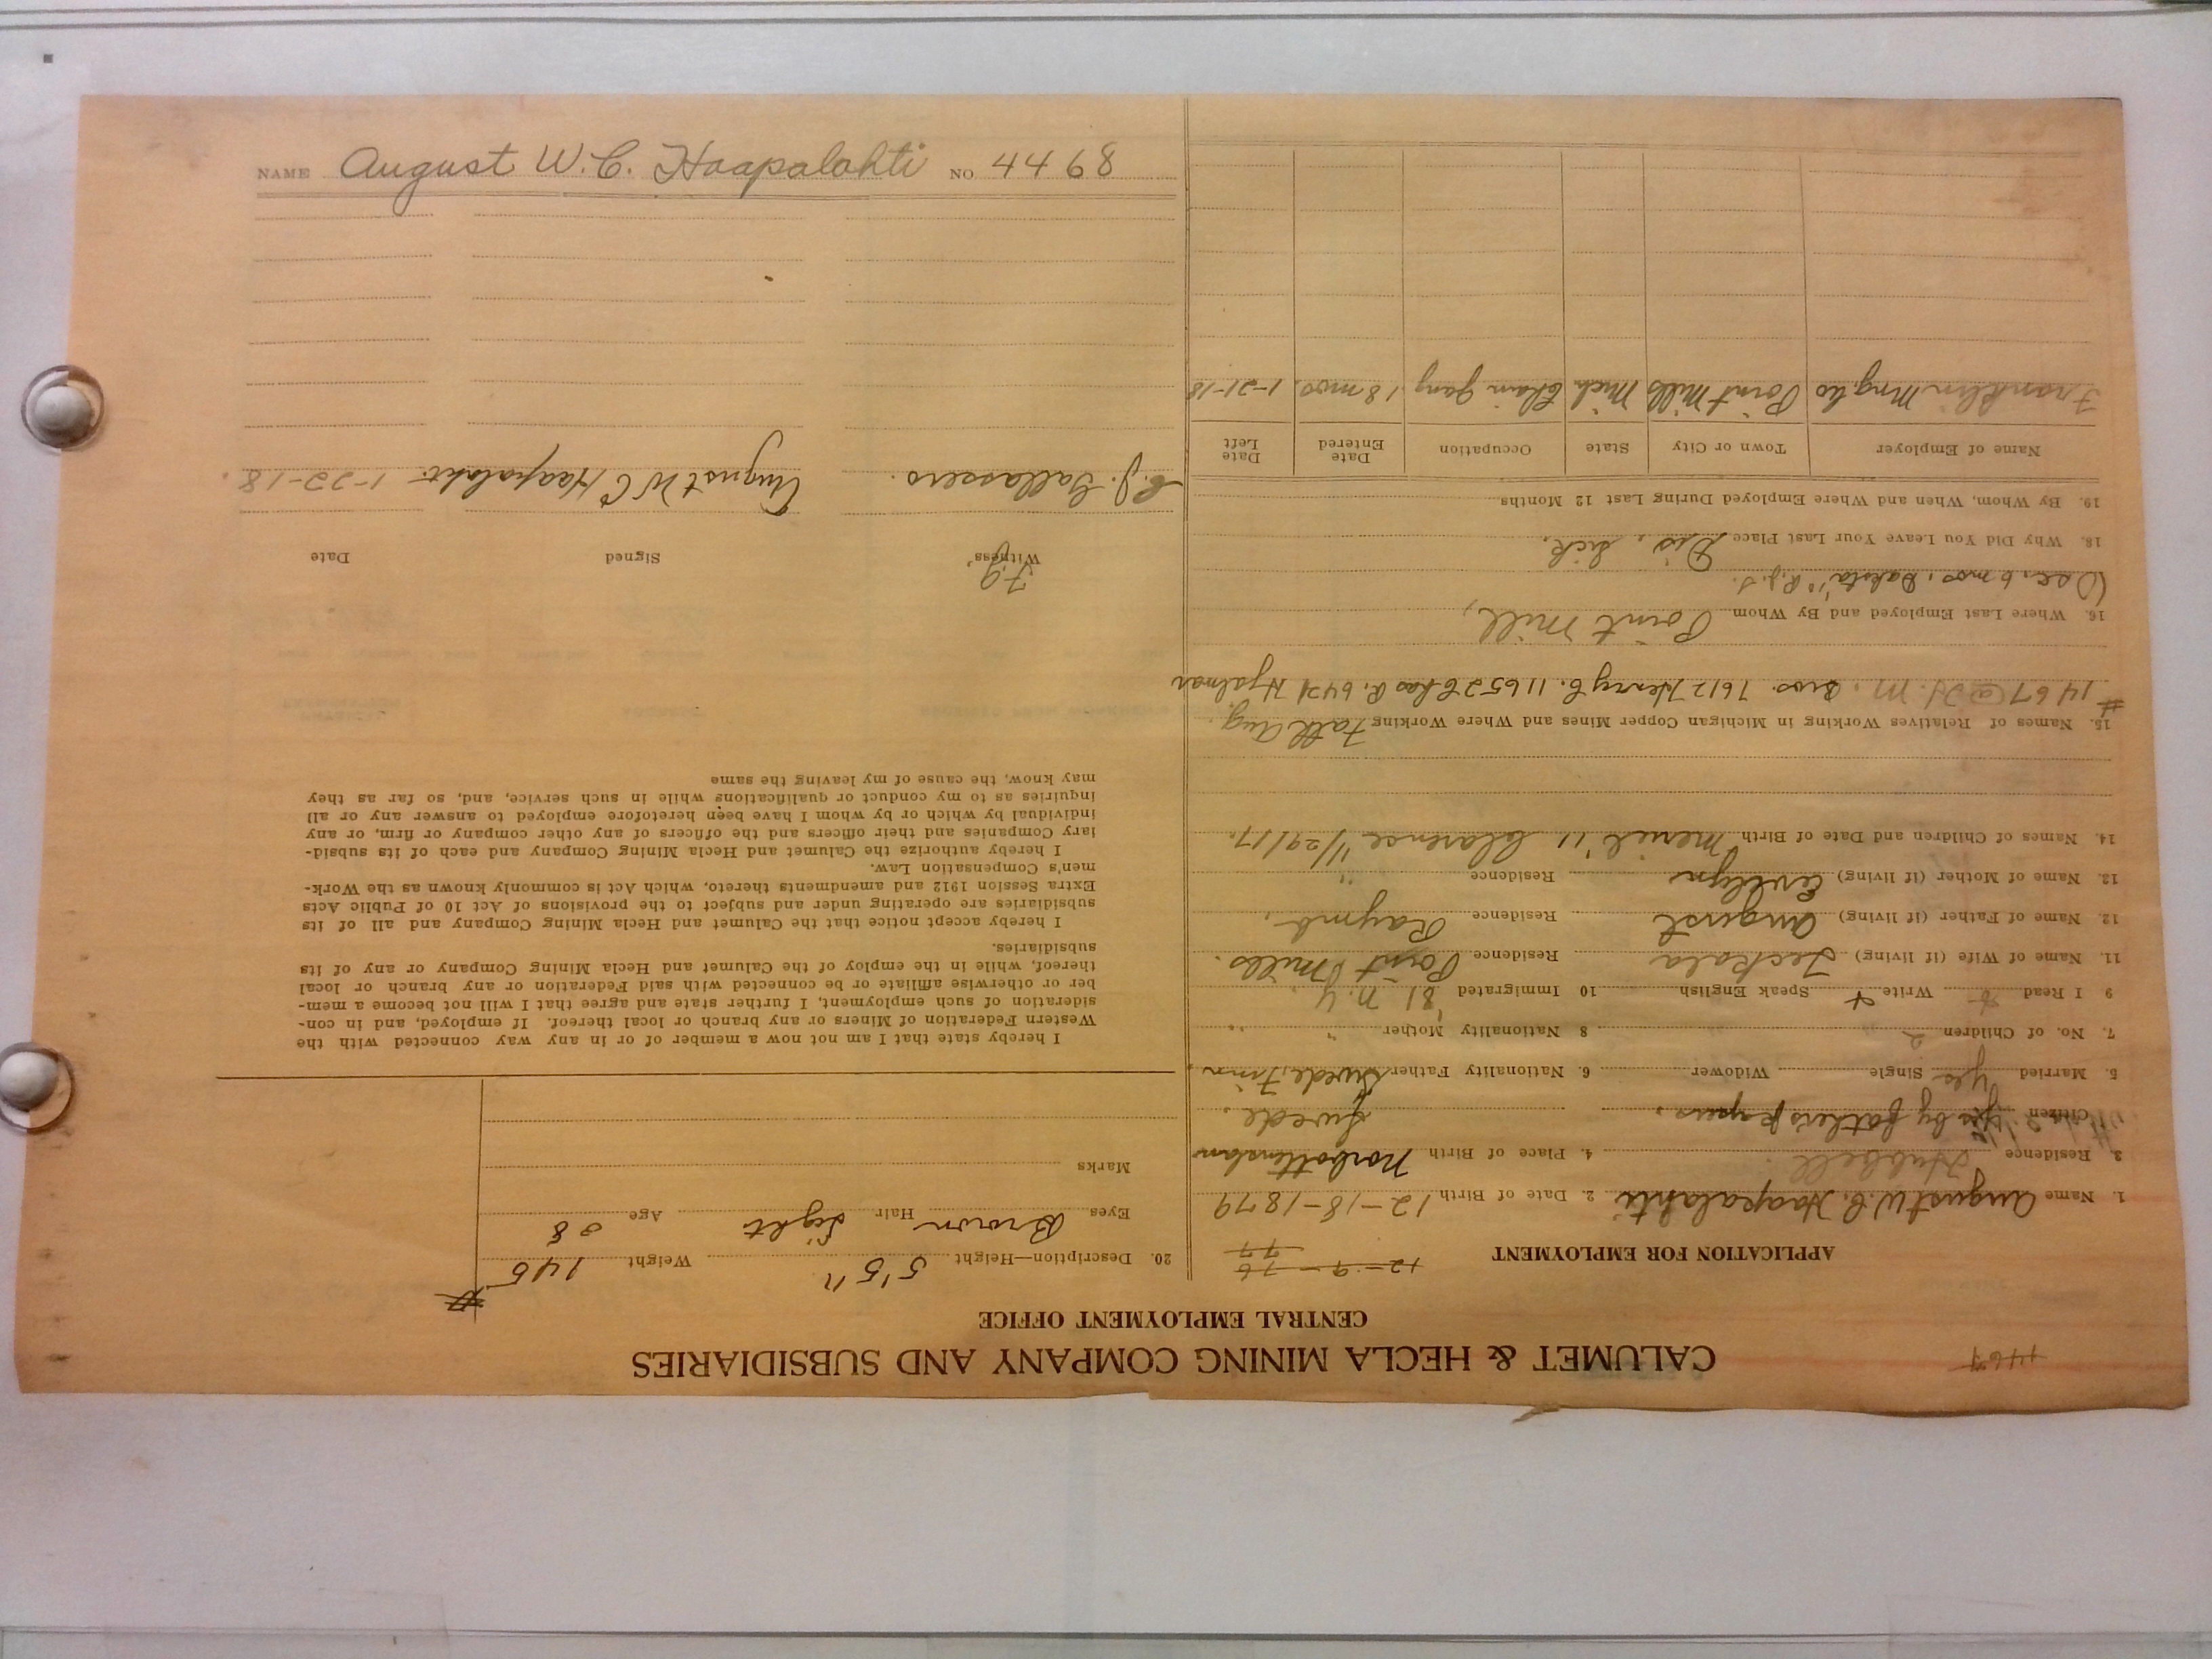 1467
CALUMET & HECLA MINING COMPANY AND SUBSIDIARIES
CENTRAL EMPLOYMENT OFFICE
APPLICATION FOR EMPLOYMENT 12-9-76
77
1. Name August W. C. Haapalahti 2. Date of Birth 12-18-1879
3. Residence Hubbell 4. Place of Birth Norbottenslan
Citizen Yes by fathers papers. Swede.
5. Married Yes Single Widower 6. Nationality Father Swede, Finn
7. No. of Children 2 8 Nationality Mother " "
9 I Read Write Speak English 10 Immigrated '81 N.Y.
11. Name of Wife (if living) Residence Point Mills.
12. Name of Father (if living) August Residence Raymb.
13. Name of Mother (if living) Evelyn Residence "
14. Names of Children and Date of Birth '11 Clarence 11/29/17.
15. Names of Relatives Working in Michigan Copper Mines and Where Working Fath Aug.
#1467 Bros. 7612 Henry E. 11652 Chas A. 6421 Hjalmar
16. Where Last Employed and By Whom Point Mill,
(Dec. 6 mos. Dakota
18. Why Did You Leave Your Last Place Dis. Sick.
19. By Whom, When and Where Employed During Last 12 Months
Name of Employer Town or City State Occupation Date Entered Date Left
Franklin Mng Co Point Mills Mich Chain Gang 18 mos. 1-21-18
20. Description—Height 5'5" Weight 145
Eyes Brown Hair Light Age 38
Marks
I hereby state that I am not now a member of or in any way connected with the
Western Federation of Miners or any branch or local thereof. If employed, and in con-
sideration of such employment, I further state and agree that I will not become a mem-
ber or otherwise affiliate or be connected with said Federation or any branch or local
thereof, while in the employ of the Calumet and Hecla Mining Company or any of its
subsidiaries.
I hereby accept notice that the Calumet and Hecla Mining Company and all of its
subsidiaries are operating under and subject to the provisions of Act 10 of Public Acts
Extra Session 1912 and amendments thereto, which Act is commonly known as the Work-
men's Compensation Law.
I hereby authorize the Calumet and Hecla Mining Company and each of its subsid-
iary Companies and their officers and the officers of any other company or firm, or any
individual by which or by whom I have been heretofore employed to answer any or all
inquiries as to my conduct or qualifications while in such service, and, so far as they
may know, the cause of my leaving the same
Witness Signed Date
August W C Haapalahti 1-22-18.
NAME August W.C. Haapalahti NO. 4468